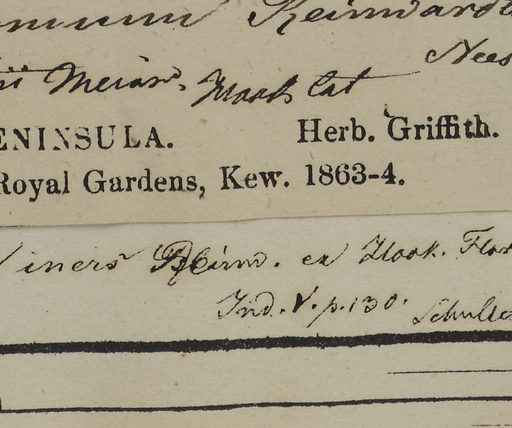 Reinwardt
Nees
Meisn. Hook Cat
ENINSULA. Herb. Griffith.
Royal Gardens, Kew. 1863-4.
iners Reinw. ex Hook. Flor
Ind. V. p. 130. Schultes